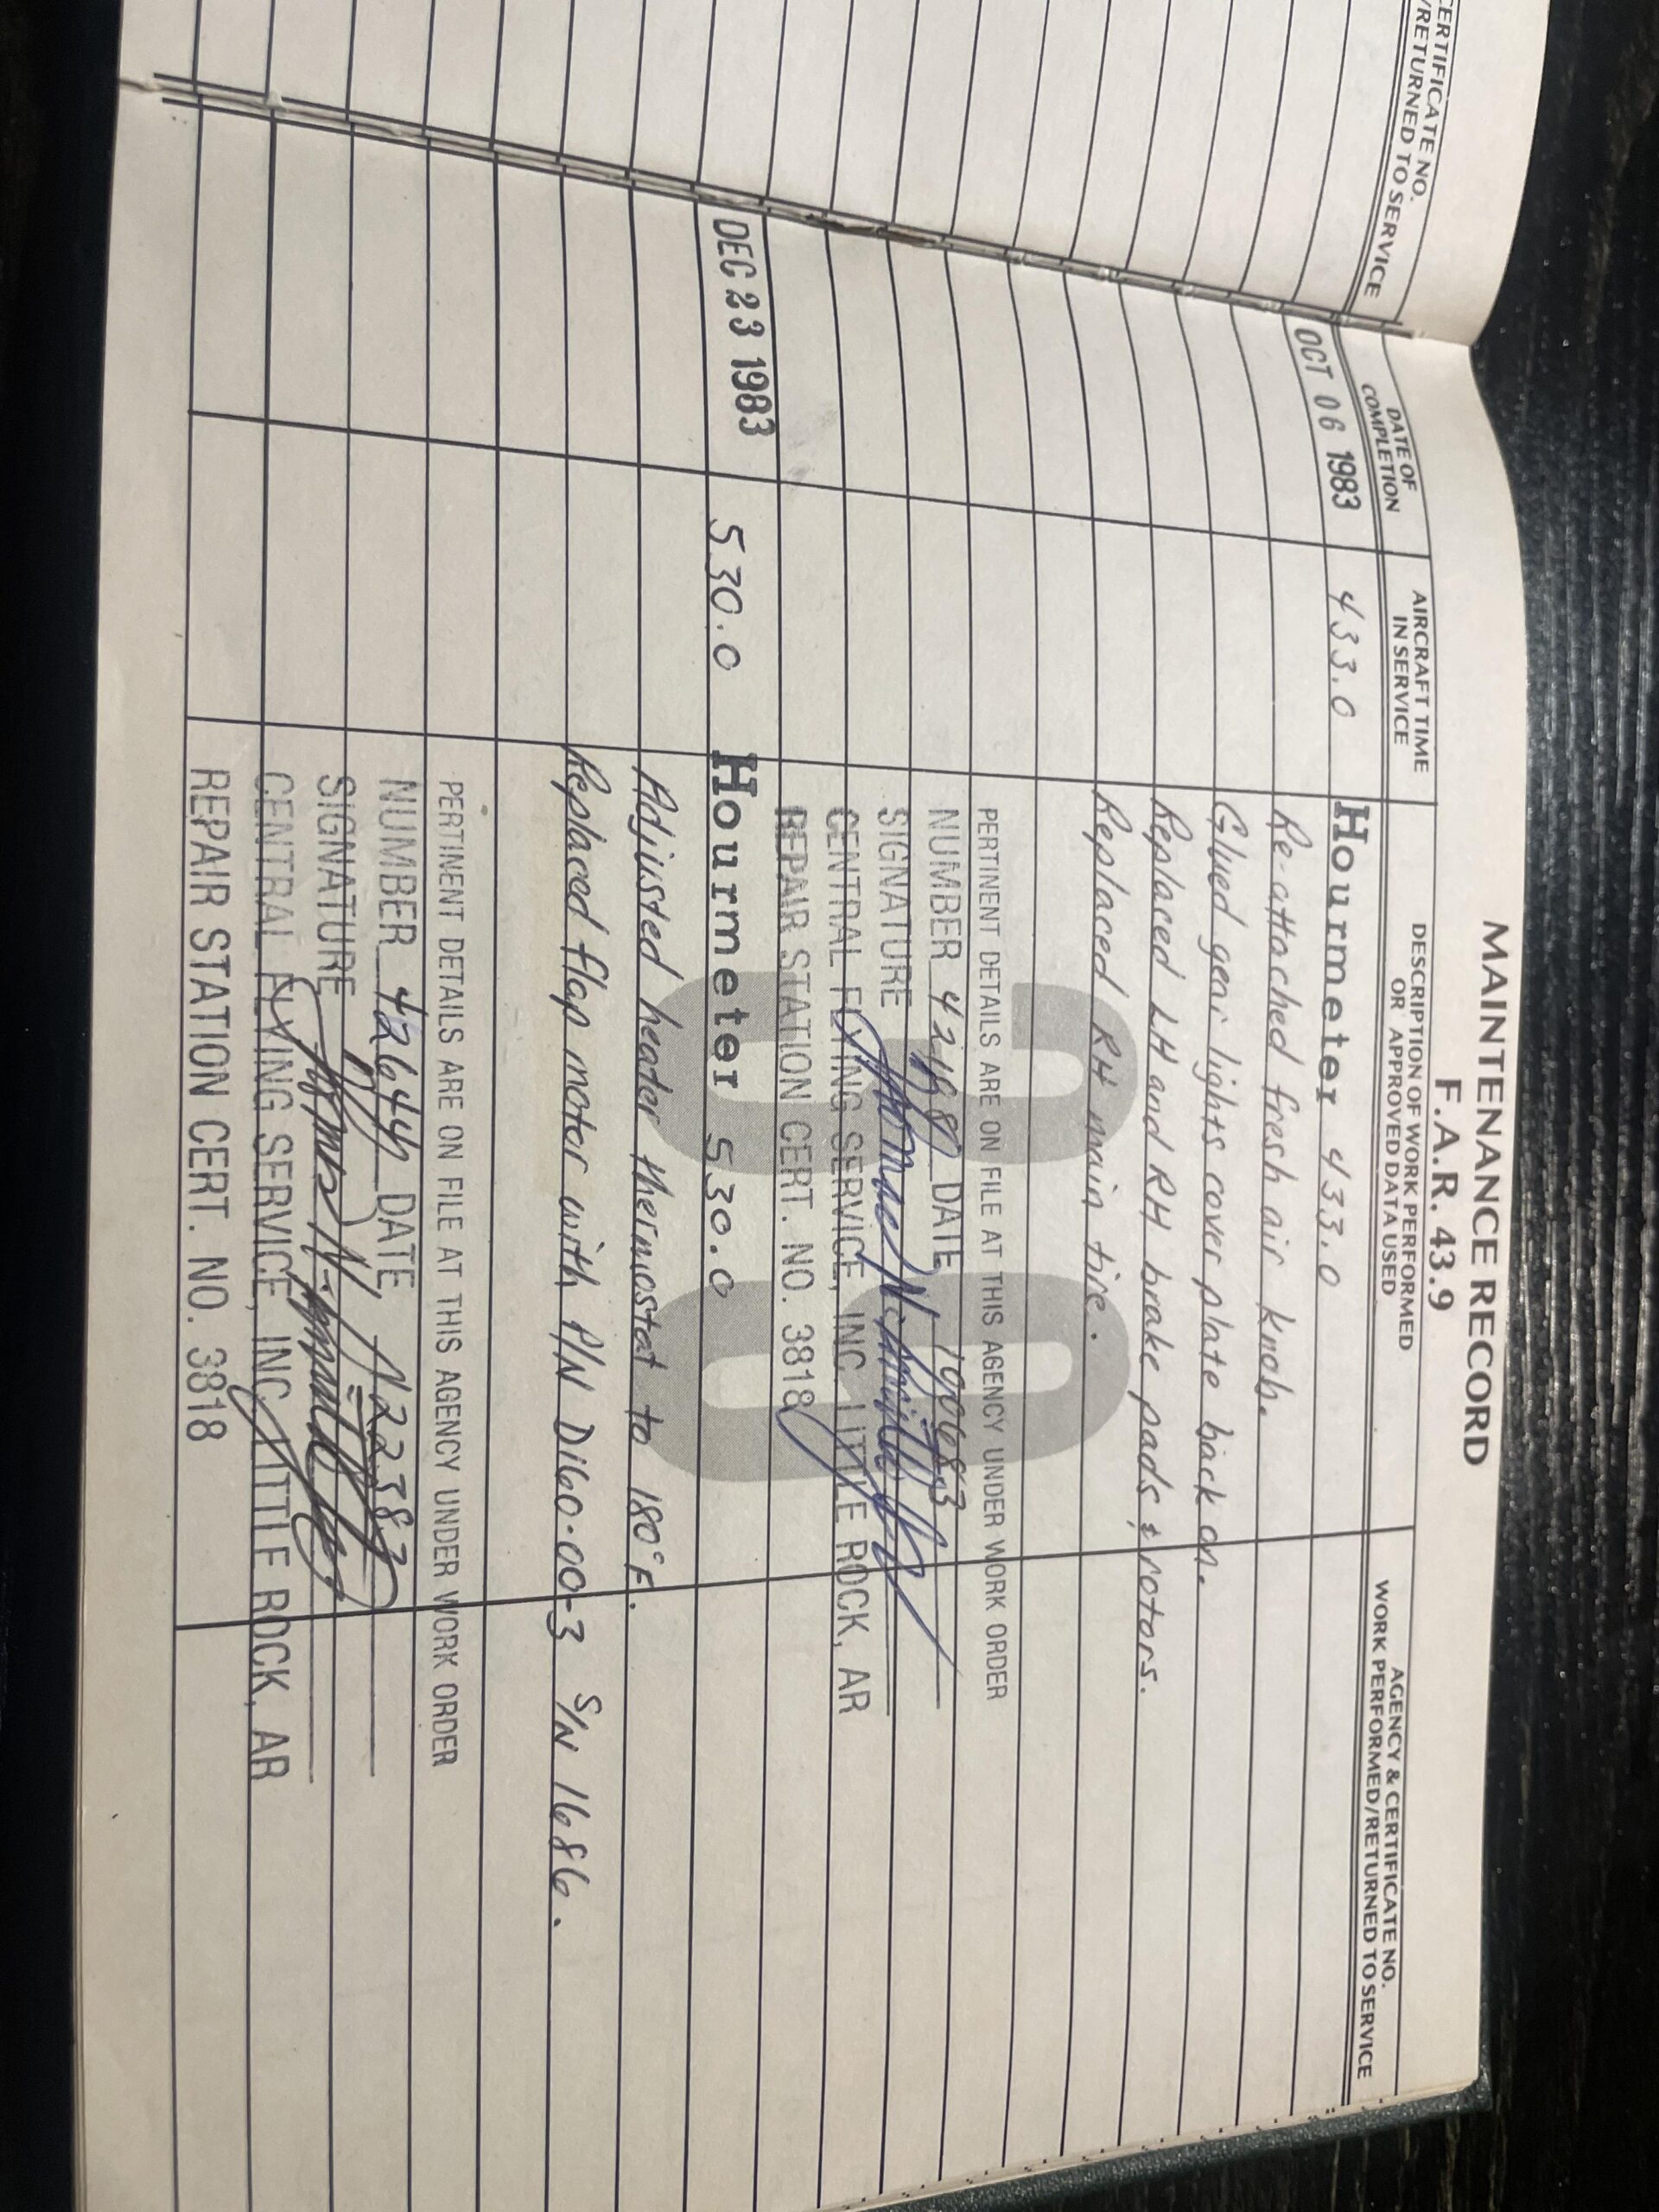 CERTIFICATE NO.
/RETURNED TO SERVICE
MAINTENANCE RECORD
F.A.R. 43.9
DATE OF COMPLETION
AIRCRAFT TIME IN SERVICE
DESCRIPTION OF WORK PERFORMED OR APPROVED DATA USED
AGENCY & CERTIFICATE NO. WORK PERFORMED/RETURNED TO SERVICE
OCT 06 1983 433.0 Hourmeter 433.0
Re-attached fresh air knob.
Glued gear lights cover plate back on.
Replaced LH and RH brake pads & rotors.
Replaced RH main tire.
PERTINENT DETAILS ARE ON FILE AT THIS AGENCY UNDER WORK ORDER
NUMBER DATE 100683
SIGNATURE
CENTRAL FLYING SERVICE, INC. LITTLE ROCK, AR
REPAIR STATION CERT. NO. 3818
DEC 23 1983 530.0 Hourmeter 530.0
Adjusted header thermostat to 180°F.
Replaced flap motor with P/N D160-00-3 S/N 1686.
PERTINENT DETAILS ARE ON FILE AT THIS AGENCY UNDER WORK ORDER
NUMBER 42644 DATE 122383
SIGNATURE
CENTRAL FLYING SERVICE, INC. LITTLE ROCK, AR
REPAIR STATION CERT. NO. 3818